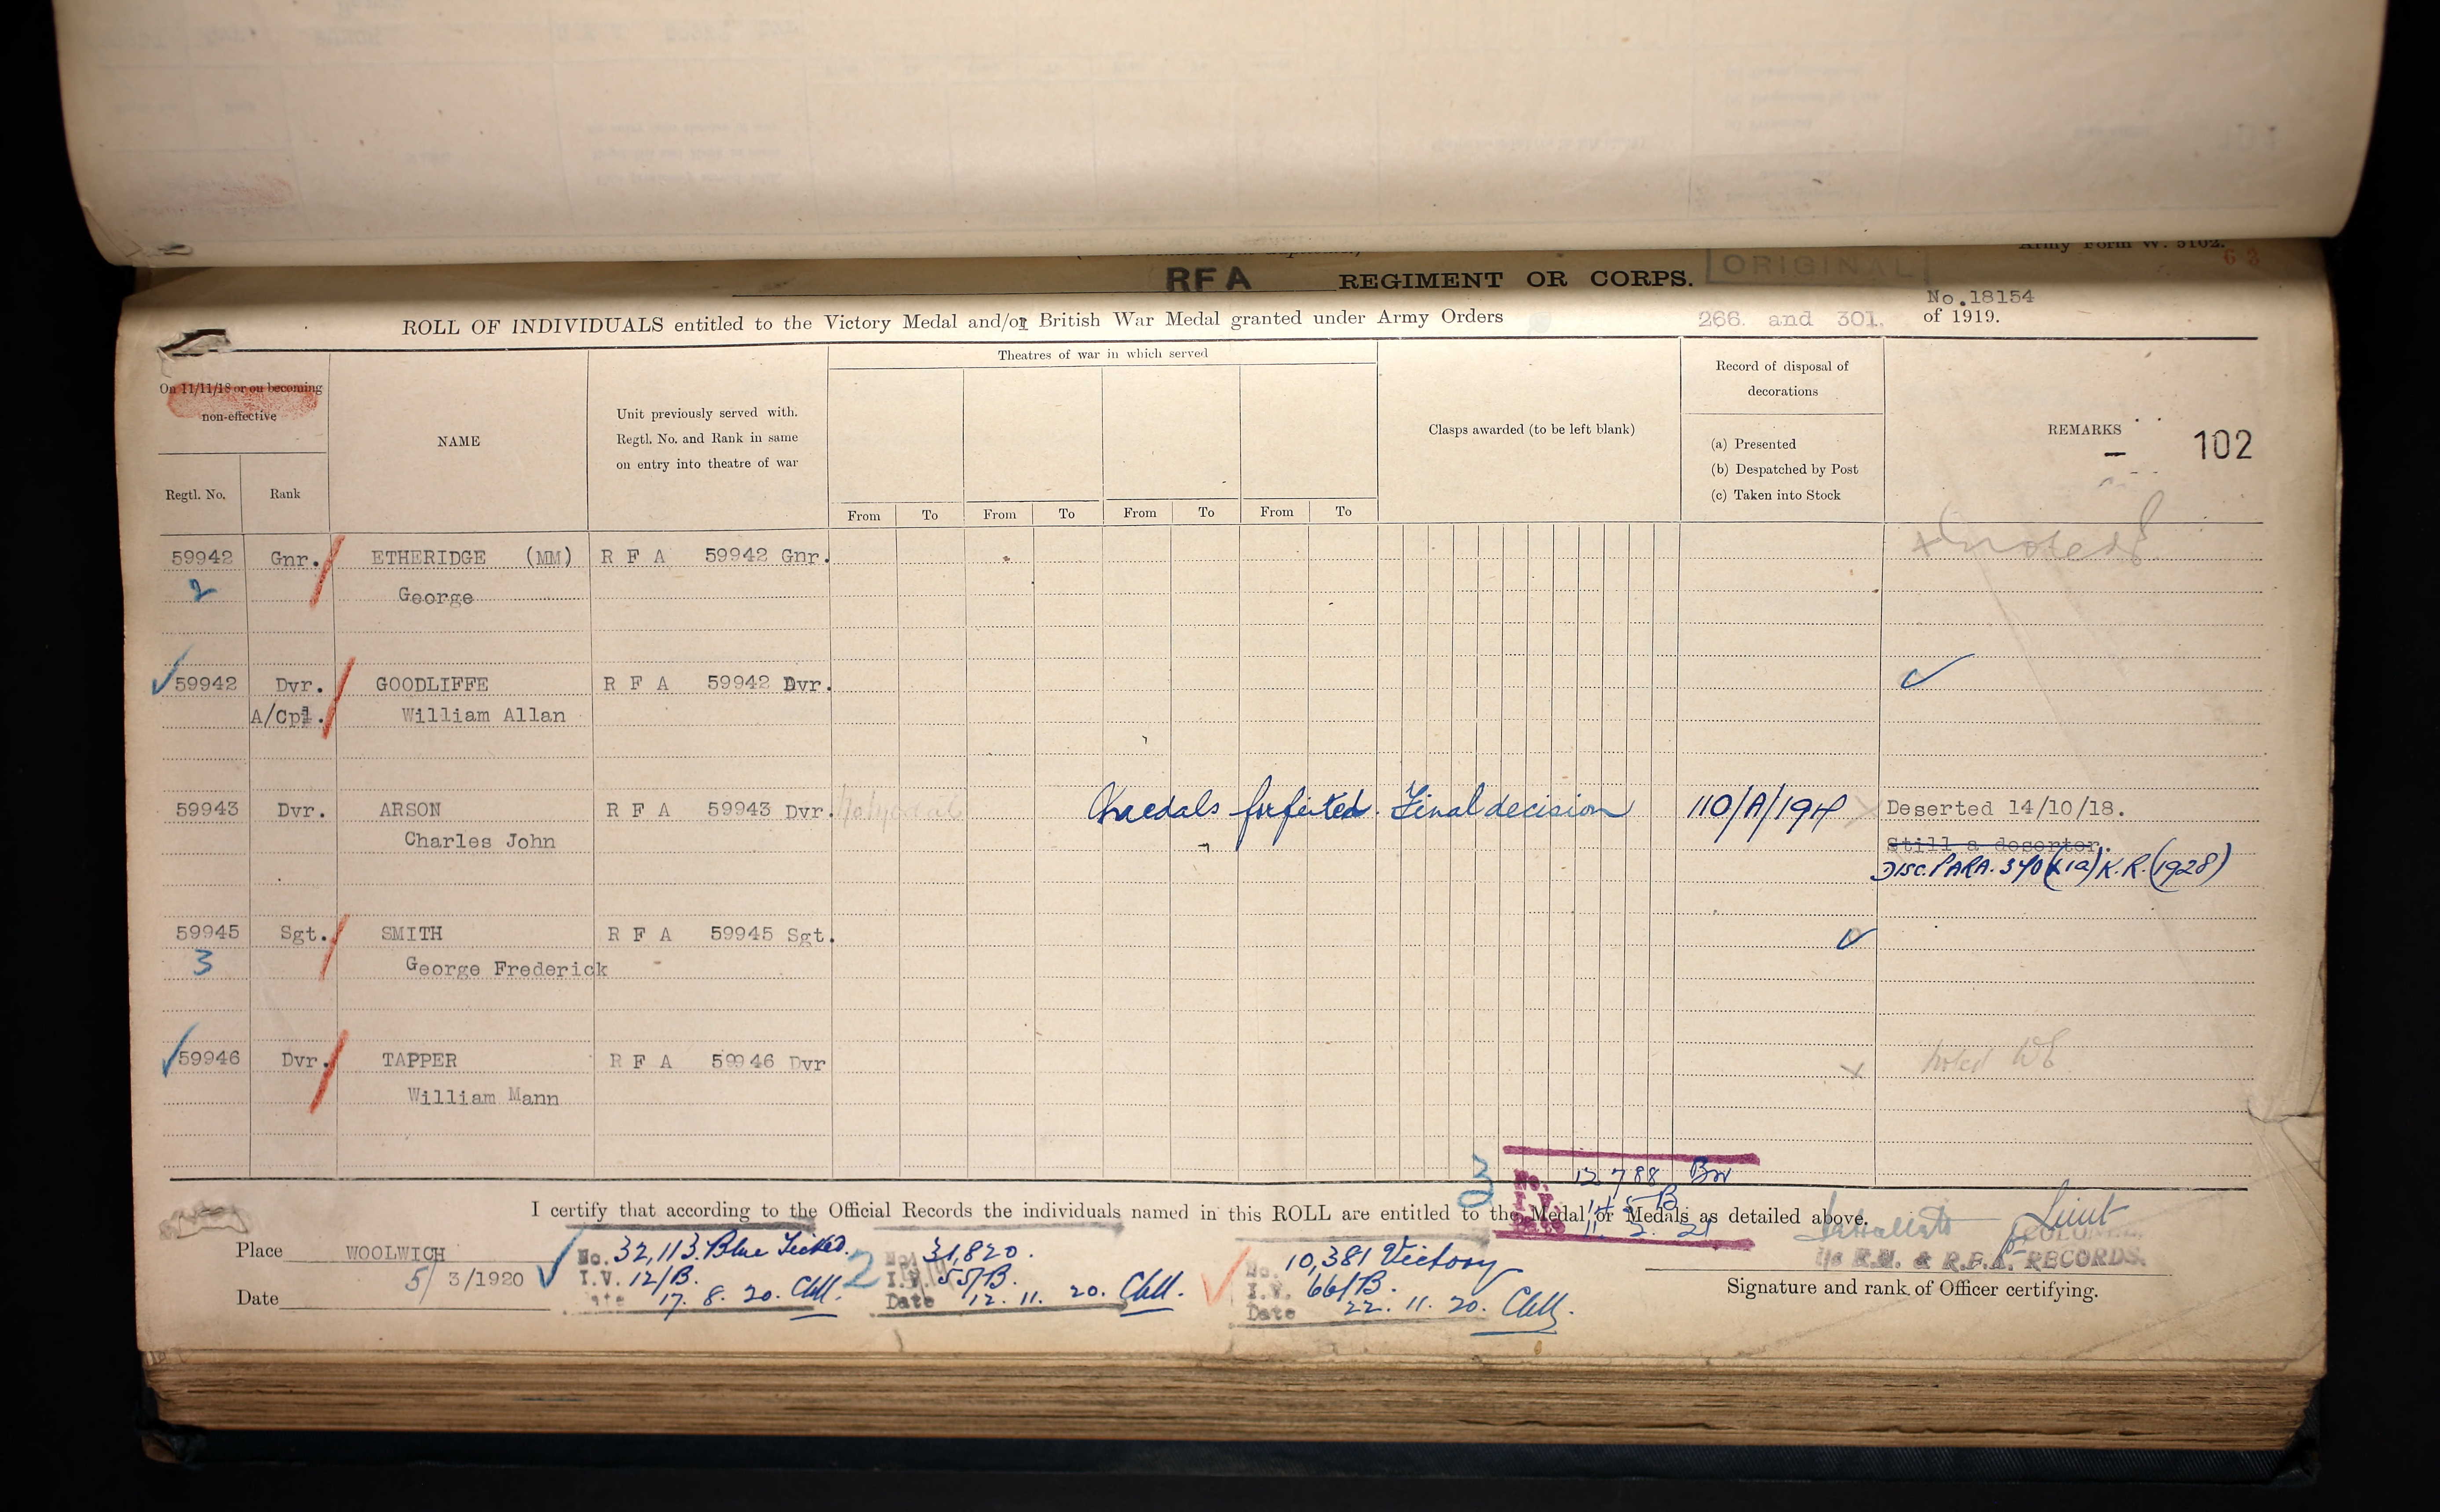 Army Form W. 5102.
63
RFA REGIMENT OR CORPS. ORIGINAL
No.18154
ROLL OF INDIVIDUALS entitled to the Victory Medal and/or British War Medal granted under Army Orders 266. and 301. of 1919.
Theatres of war in which served
On 11/11/18 or on becoming non-effective
Regtl. No.
Rank
NAME
Unit previously served with.
Regtl. No. and Rank in same
on entry into theatre of war
From To From To From To From To
Clasps awarded (to be left blank)
Record of disposal of
decorations
(a) Presented
(b) Despatched by Post
(c) Taken into Stock
REMARKS
102
59942 Gnr. ETHERIDGE (MM) R F A 59942 Gnr.
2 George
59942 Dvr. GOODLIFFE R F A 59942 Dvr.
A/Cpl. William Allan
59943 Dvr. ARSON R F A 59943 Dvr. Medals forfeited. Final decision 110/A/194 Deserted 14/10/18.
Charles John Still a deserter.
DISC. PARA. 370 (11a) K.R. (1928)
59945 Sgt. SMITH R F A 59945 Sgt.
3 George Frederick
59946 Dvr. TAPPER R F A 59946 Dvr noted
William Mann
3 No. 12788 BW
I certify that according to the Official Records the individuals named in this ROLL are entitled to the Medal or Medals as detailed above.
Lieut
Place WOOLWICH
No. 32,113. Blue Ticked.
2 No. 31,820.
No. 10,381 Victory
R.H. & R.F.A. RECORDS.
5/ 3/1920
I.V. 12/B.
I.V. 55/B.
I.V. 66/B.
Signature and rank of Officer certifying.
Date
Date 17. 8. 20.
Date 12. 11. 20.
Date 22. 11. 20.